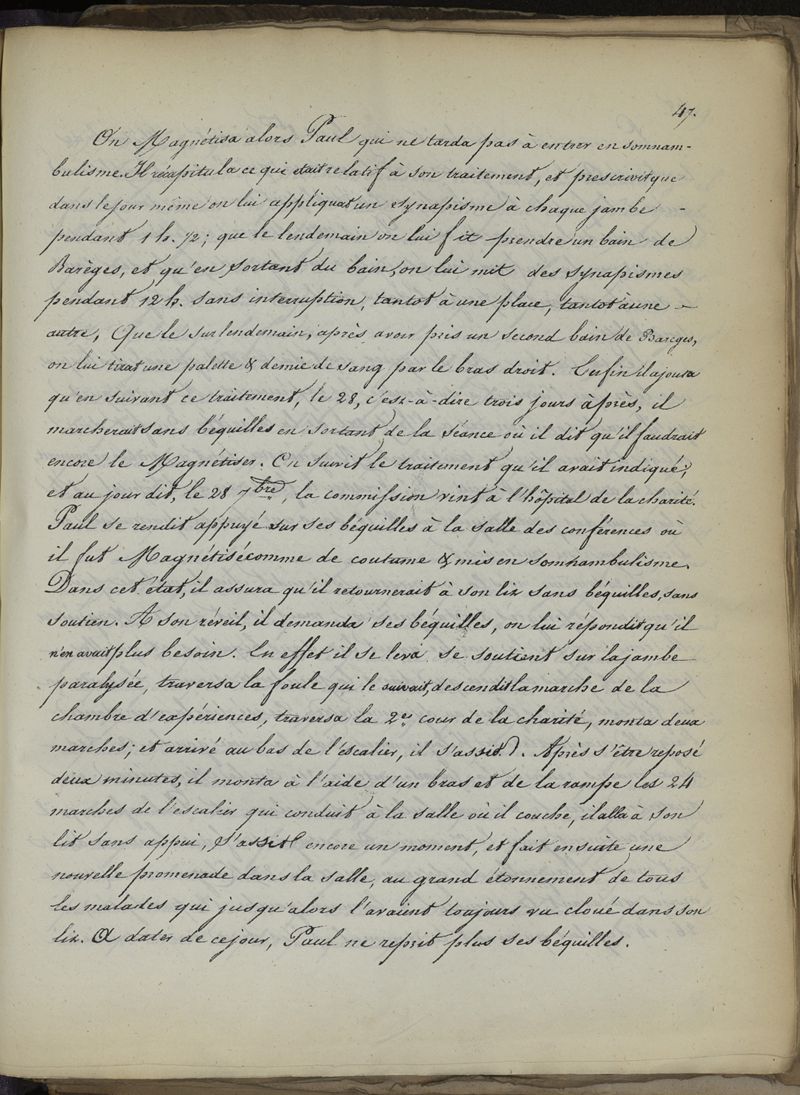 47.
On Magnétisa alors Paul qui ne tarda pas à entrer en somnam-
bulisme. Il récapitula ce qui était relatif à son traitement, et prescrivit que
dans le jour même on lui appliquat un synapisme à chaque jambe -
pendant 1 h. 1/2; que le lendemain on lui fit prendre un bain de
Barèges, et qu'en sortant du bain, on lui mit des synapismes
pendant 12 h. sans interruption, tantot à une place, tantot à une -
autre, Que le surlendemain, après avoir pris un second bain de Barèges,
on lui tirat une palette & demie de sang par le bras droit. Enfin il ajouta
qu'en suivant ce traitement, le 28, c'est-à-dire trois jours après, il
marcherait sans béquilles en sortant de la séance où il dit qu'il faudrait
encore le Magnétiser. On suivit le traitement qu'il avait indiqué,
et au jour dit, le 28 7bre, la commission vint à l'hôpital de la charité.
Paul se rendit appuyé sur ses béquilles à la salle des conférences où
il fut Magnétisé comme de coutume & mis en somnambulisme.
Dans cet état, il assura qu'il retournerait à son lit sans béquilles, sans
soutien. A son réveil, il demanda ses béquilles, on lui répondit qu'il
n'en avait plus besoin. En effet il se leva se soutient sur la jambe
paralysée, traversa la foule qui le suivait, descendit la marche de la
chambre d'expériences, traversa la 2e cour de la charité, monta deux
marches; et arrivé au bas de l'escalier, il s'assit. Après s'être reposé
deux minutes, il monta à l'aide d'un bras et de la rampe les 24
marches de l'escalier qui conduit à la salle où il couche, il alla à son
lit sans appui, s'assit encore un moment, et fait ensuite une
nouvelle promenade dans la salle, au grand étonnement de tous
les malades qui jusqu'alors l'avaient toujours vu cloué dans son
lit. A dater de ce jour, Paul ne reprit plus ses béquilles.